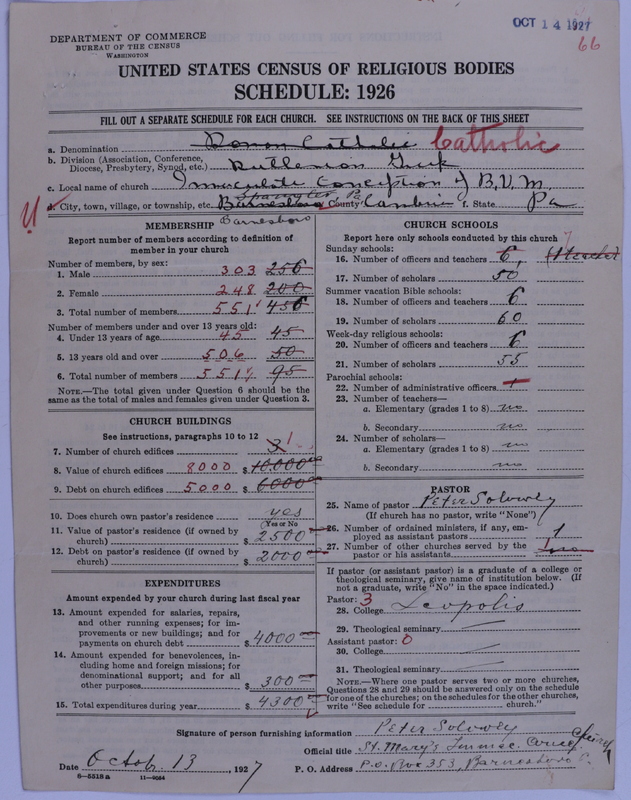 OCT 14 1927
66
DEPARTMENT OF COMMERCE
BUREAU OF THE CENSUS
WASHINGTON
UNITED STATES CENSUS OF RELIGIOUS BODIES
SCHEDULE: 1926
FILL OUT A SEPARATE SCHEDULE FOR EACH CHURCH. SEE INSTRUCTIONS ON THE BACK OF THIS SHEET
a. Denomination Roman Catholic Catholic
b. Division (Association, Conference, Diocese, Presbytery, Synod, etc.) Ruthenion Greek
c. Local name of church Immaculate Conception of B.V.M.
d. City, town, village, or township, etc. Barnesboro County Cambria f. State Pa
Barnesboro
MEMBERSHIP
Report number of members according to definition of
member in your church
Number of members, by sex:
1. Male 303 256
2. Female 248 200
3. Total number of members 551 456
Number of members under and over 13 years old:
4. Under 13 years of age 45 45
5. 13 years old and over 506 50
6. Total number of members 551 95
NOTE.—The total given under Question 6 should be the
same as the total of males and females given under Question 3.
CHURCH BUILDINGS
See instructions, paragraphs 10 to 12
7. Number of church edifices 3 1
8. Value of church edifices 8000 $ 10.000
9. Debt on church edifices 5000 $ 6000
10. Does church own pastor's residence yes
(Yes or No)
11. Value of pastor's residence (if owned by
church) $ 2500
12. Debt on pastor's residence (if owned by
church) $ 2000
EXPENDITURES
Amount expended by your church during last fiscal year
13. Amount expended for salaries, repairs,
and other running expenses; for im-
provements or new buildings; and for
payments on church debt $ 4000
14. Amount expended for benevolences, in-
cluding home and foreign missions; for
denominational support; and for all
other purposes $ 300
15. Total expenditures during year $ 4300
CHURCH SCHOOLS
Report here only schools conducted by this church
Sunday schools: 7
16. Number of officers and teachers 6,
17. Number of scholars 50
Summer vacation Bible schools:
18. Number of officers and teachers 6
19. Number of scholars 60
Week-day religious schools:
20. Number of officers and teachers 6
21. Number of scholars 55
Parochial schools:
22. Number of administrative officers 1
23. Number of teachers—
a. Elementary (grades 1 to 8) no
b. Secondary no
24. Number of scholars—
a. Elementary (grades 1 to 8) no
b. Secondary no
PASTOR
25. Name of pastor Peter Solowey
(If church has no pastor, write "None")
26. Number of ordained ministers, if any, em-
ployed as assistant pastors 1
27. Number of other churches served by the
pastor or his assistants
If pastor (or assistant pastor) is a graduate of a college or
theological seminary, give name of institution below. (If
not a graduate, write "No" in the space indicated.)
Pastor: 3
28. College Leopolis
29. Theological seminary
Assistant pastor: 0
30. College
31. Theological seminary
NOTE.—Where one pastor serves two or more churches,
Questions 28 and 29 should be answered only on the schedule
for one of the churches; on the schedules for the other churches,
write "See schedule for church."
Signature of person furnishing information Peter Solowey
Official title St. Mary's Immac. Concep. Church
Date Octob. 13, 1927 P. O. Address P.O. Box 353, Barnesboro Pa.
6—5518 a 11—9064